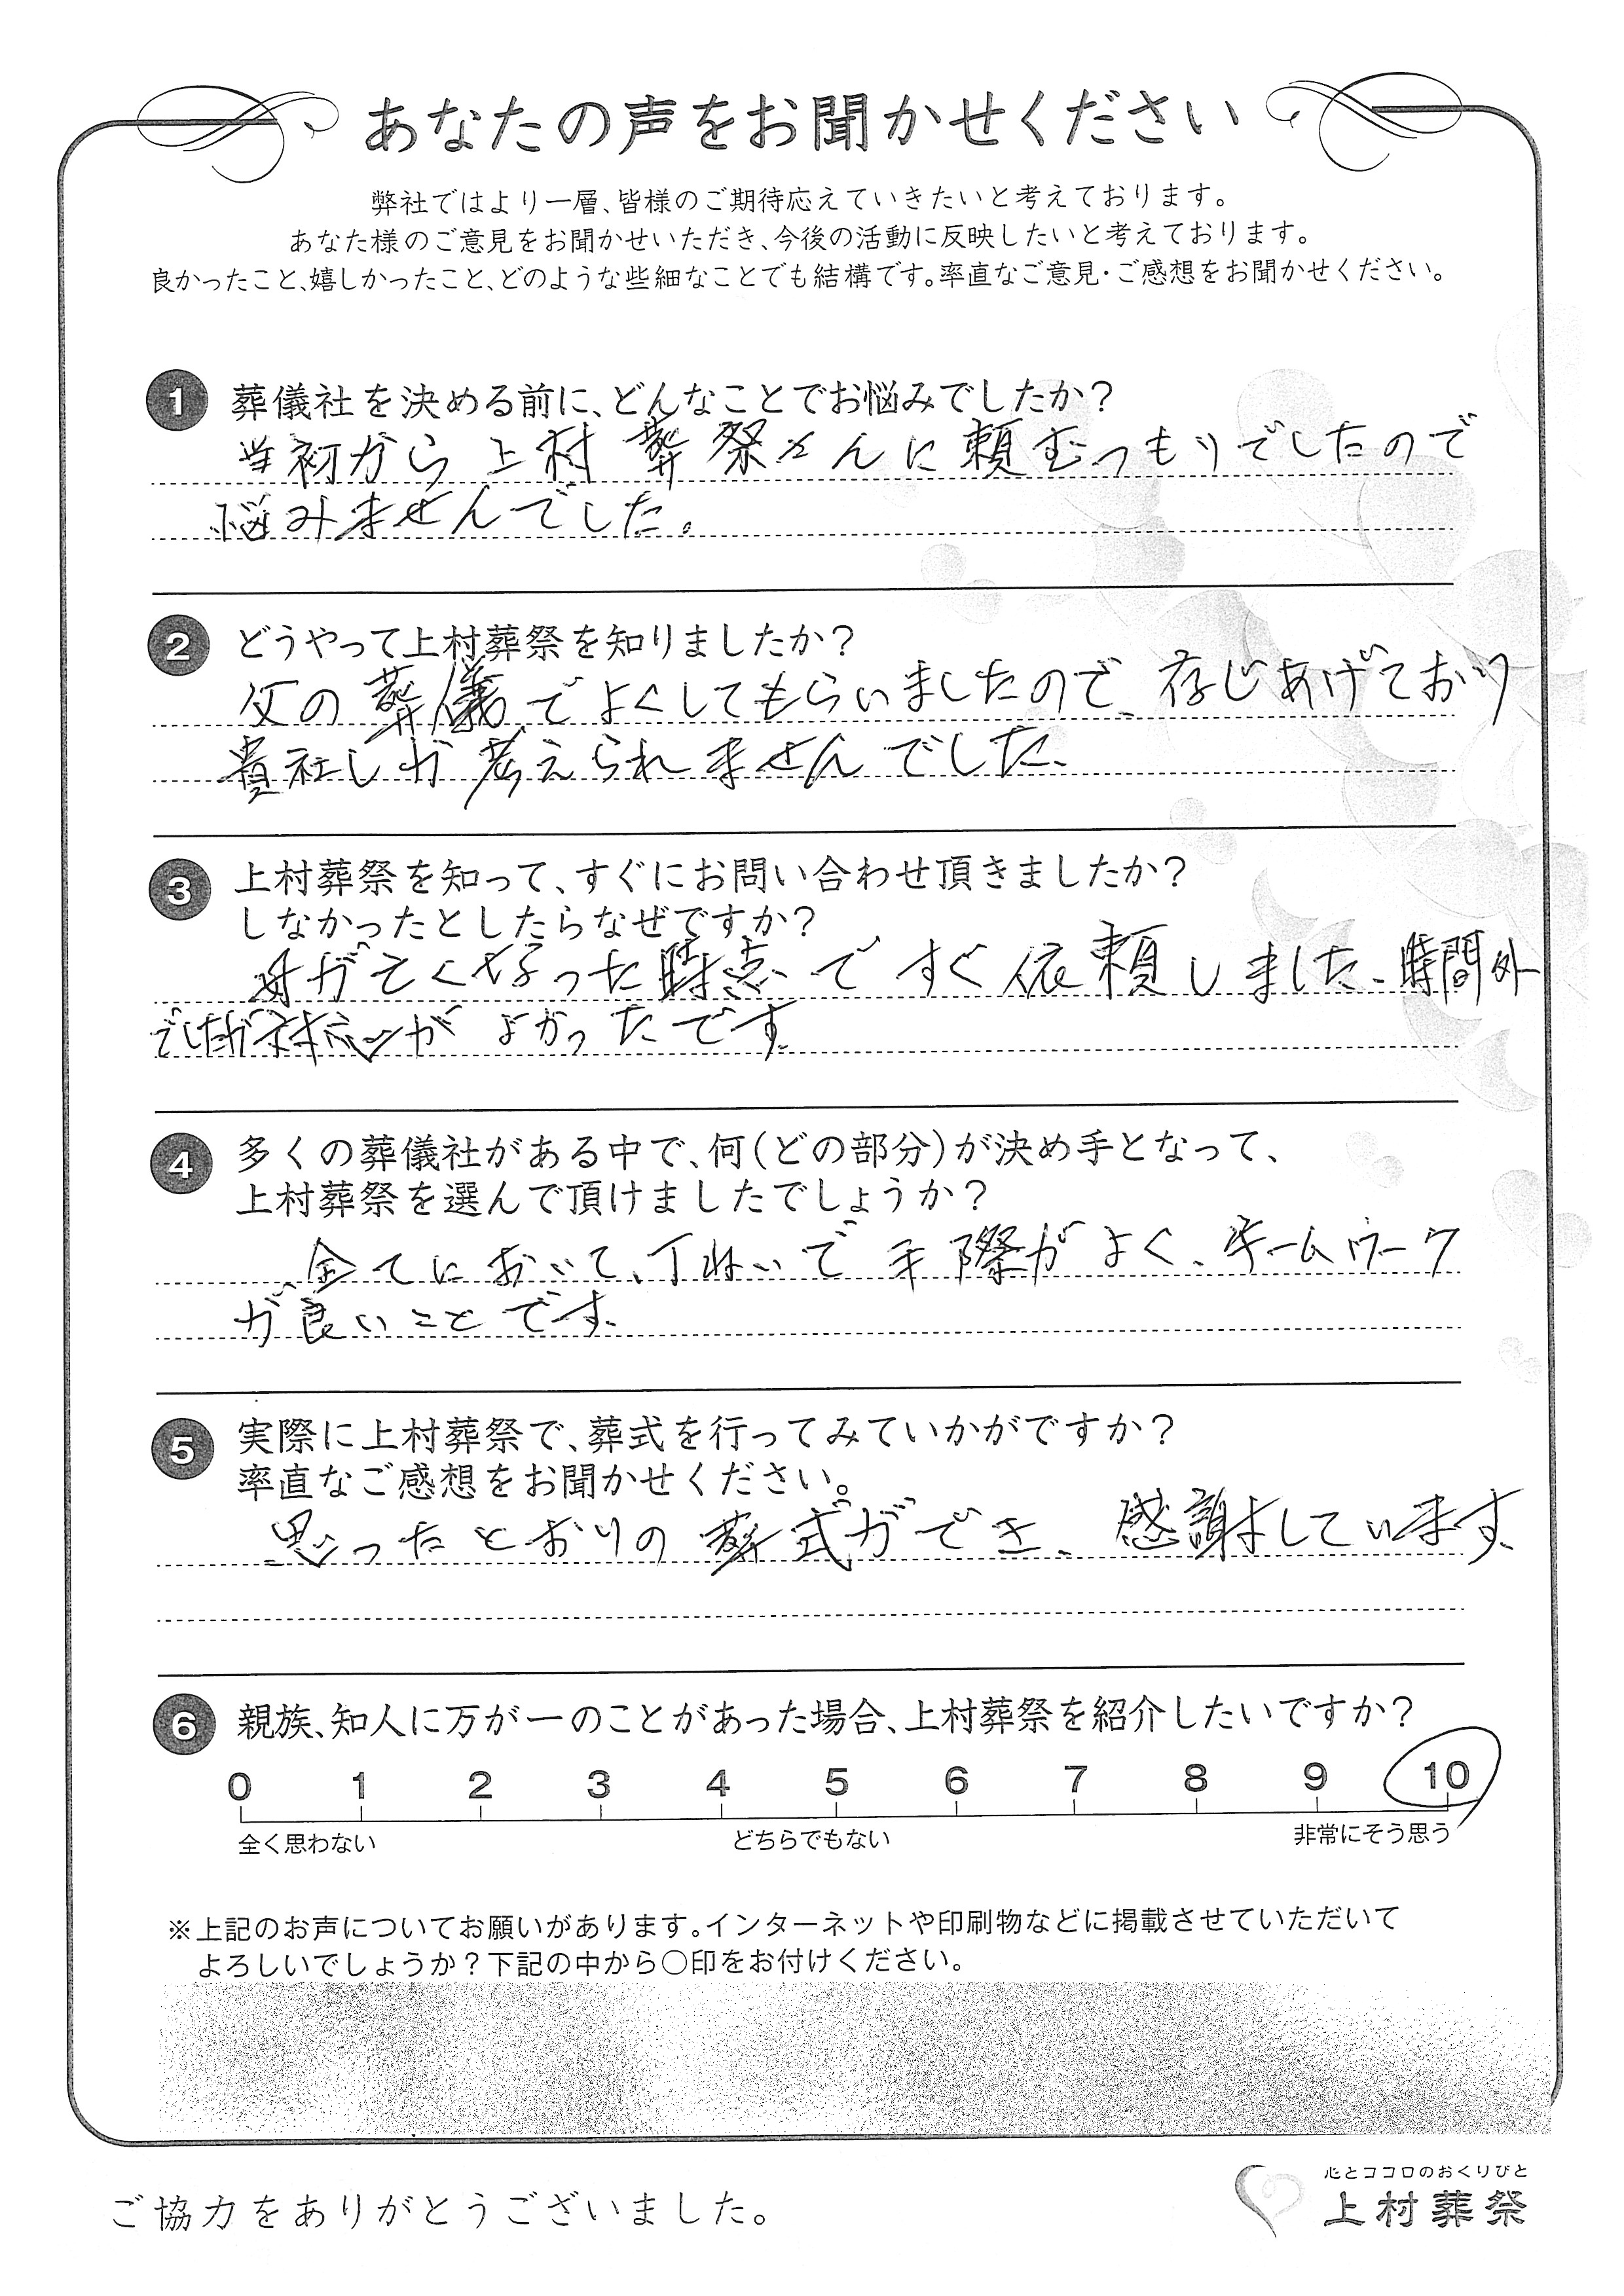 あなたの声をお聞かせください
弊社ではより一層、皆様のご期待応えていきたいと考えております。
あなた様のご意見をお聞かせいただき、今後の活動に反映したいと考えております。
良かったこと、嬉しかったこと、どのような些細なことでも結構です。率直なご意見・ご感想をお聞かせください。
1 葬儀社を決める前に、どんなことでお悩みでしたか?
当初から上村葬祭さんに頼むつもりでしたので
悩みませんでした。
2 どうやって上村葬祭を知りましたか?
父の葬儀でよくしてもらいましたので、存じあげており
貴社しか考えられませんでした。
3 上村葬祭を知って、すぐにお問い合わせ頂きましたか?
しなかったとしたらなぜですか?
母が亡くなった時点ですぐ依頼しました、時間外
でしたが対応がよかったです。
4 多くの葬儀社がある中で、何(どの部分)が決め手となって、
上村葬祭を選んで頂けましたでしょうか?
全てにおいて、丁ねいで手際がよく、チームワーク
が良いことです。
5 実際に上村葬祭で、葬式を行ってみていかがですか?
率直なご感想をお聞かせください。
思ったとおりの葬式ができ、感謝しています。
6 親族、知人に万が一のことがあった場合、上村葬祭を紹介したいですか?
0 1 2 3 4 5 6 7 8 9 10
全く思わない どちらでもない 非常にそう思う
※上記のお声についてお願いがあります。インターネットや印刷物などに掲載させていただいて
よろしいでしょうか?下記の中から○印をお付けください。
心とココロのおくりびと
上村葬祭
ご協力をありがとうございました。